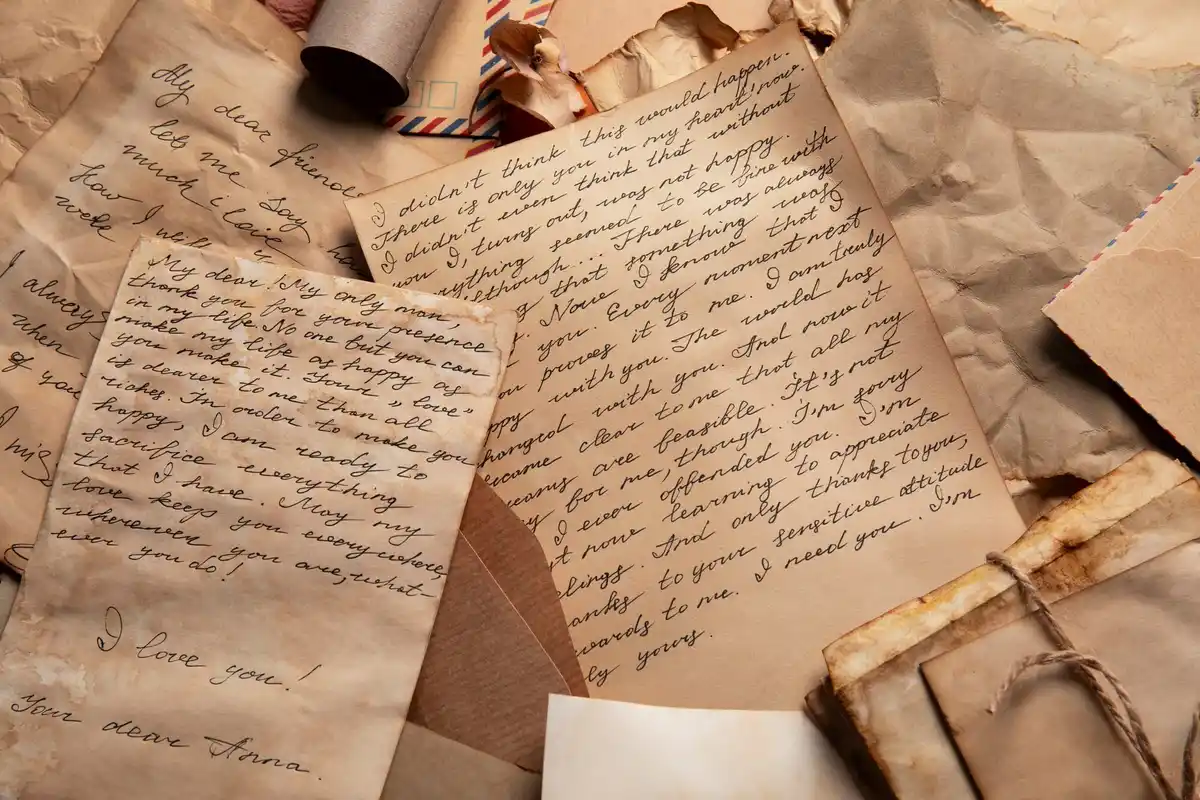 My dear friend
let me say
much i love
how I will
well
I always
when
of you
I mis
My dear! My only man,
thank you for your presence
in my life. No one but you can
make my life as happy as
you make it. Your "love"
is dearer to me than all
riches. In order to make you
happy, I am ready to
sacrifice everything
that I have. May my
love keep you everywhere,
wherever you are, what-
ever you do!
I love you!
Your dear Anna.
I didn't think this would happen.
There is only you in my heart now.
I didn't even think that without
you I, turns out, was not happy.
erything seemed to be fine with
although.... There was always
g that something was
. Now I know that I
you. Every moment next
ou proves it to me. I am truly
ppy with you. The world has
hanged with you. And now it
ecame clear to me that all my
reams are feasible. It's not
y for me, though. I'm sorry
I ever offended you. I'm
t now learning to appreciate
elings. And only thanks to you,
anks to your sensitive attitude
wards to me. I need you. I'm
ly yours.